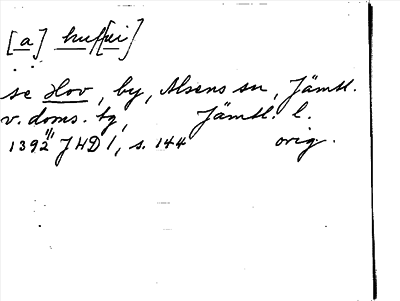 [a] huf[ui]
se Hov, by, Alsens sn, Jämtl.
v. doms. tg, Jämtl. l.
1392 JHD 1, s. 144 orig.